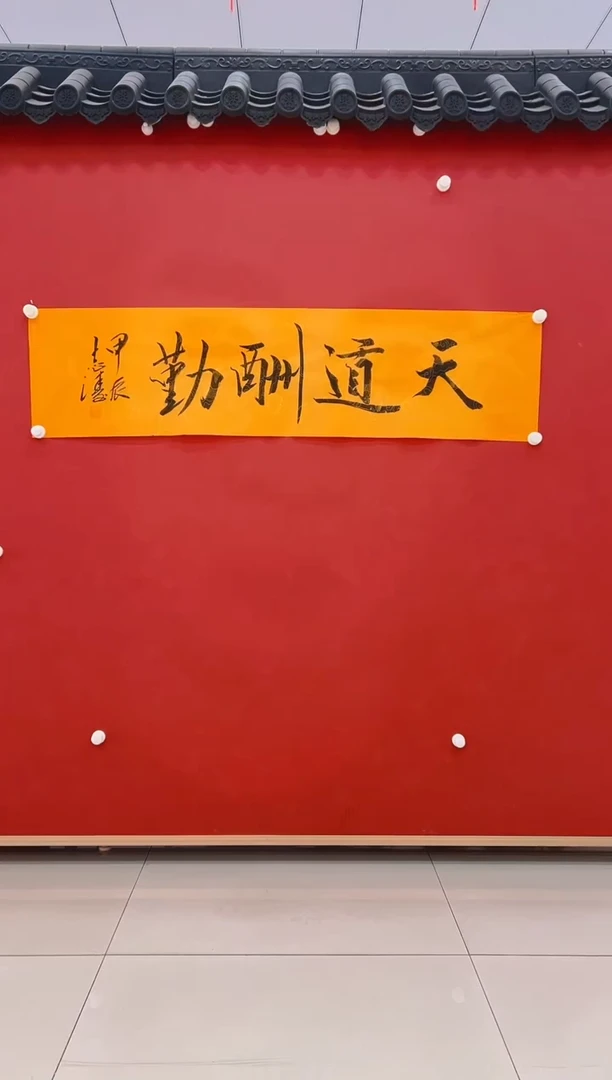 天道酬勤
甲辰